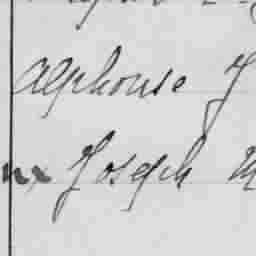 Alphonse J
Joseph M